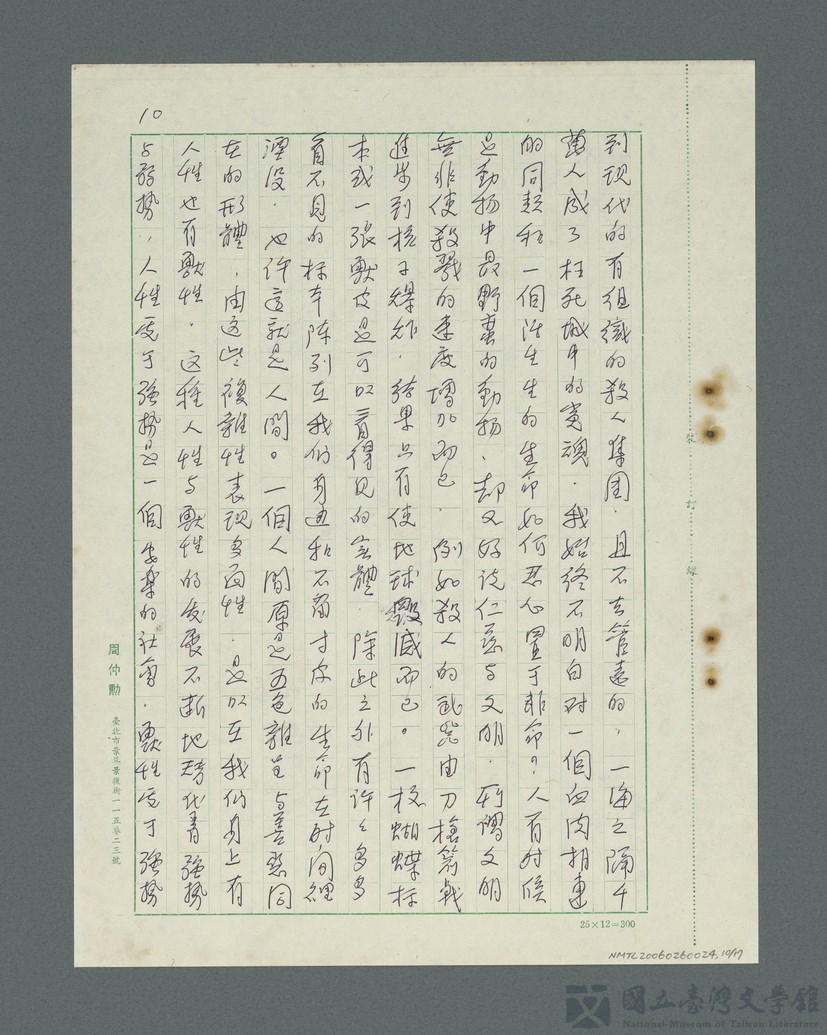 10
到现代的有组織的殺人集團．且不去管遠的，一海之隔千
萬人成了枉死城中的寃魂．我始終不明白对一個血肉相連
的同類和一個活生生的生命如何忍心置于非命？人有时候
是動物中最野蛮的動物、却又好說仁慈与文明．所謂文明
無非使殺戮的速度增加而已．例如殺人的武器由刀槍箭戟
進步到核子爆炸．結果只有使地球毀滅而已。一枚蝴蝶标
本或一張獸皮是可以看得见的实體．除此之外有許々多多
看不見的标本陈列在我們身边和不留寸皮的生命在时间裡
湮没．也许這就是人間。一個人間原是五色雜呈与善恶同
在的形體．由这些複雜性表现多面性．是以在我们身上有
人性也有獸性．这種人性与獸性的发展不断地替代着強勢
与弱势．人性處于強勢是一個安樂的社會．獸性處于強勢
周仲勲
臺北市
25×12=300
裝 訂 線
NMTL20060260024, 10/17
國立臺灣文學館
National Museum of Taiwan Literature